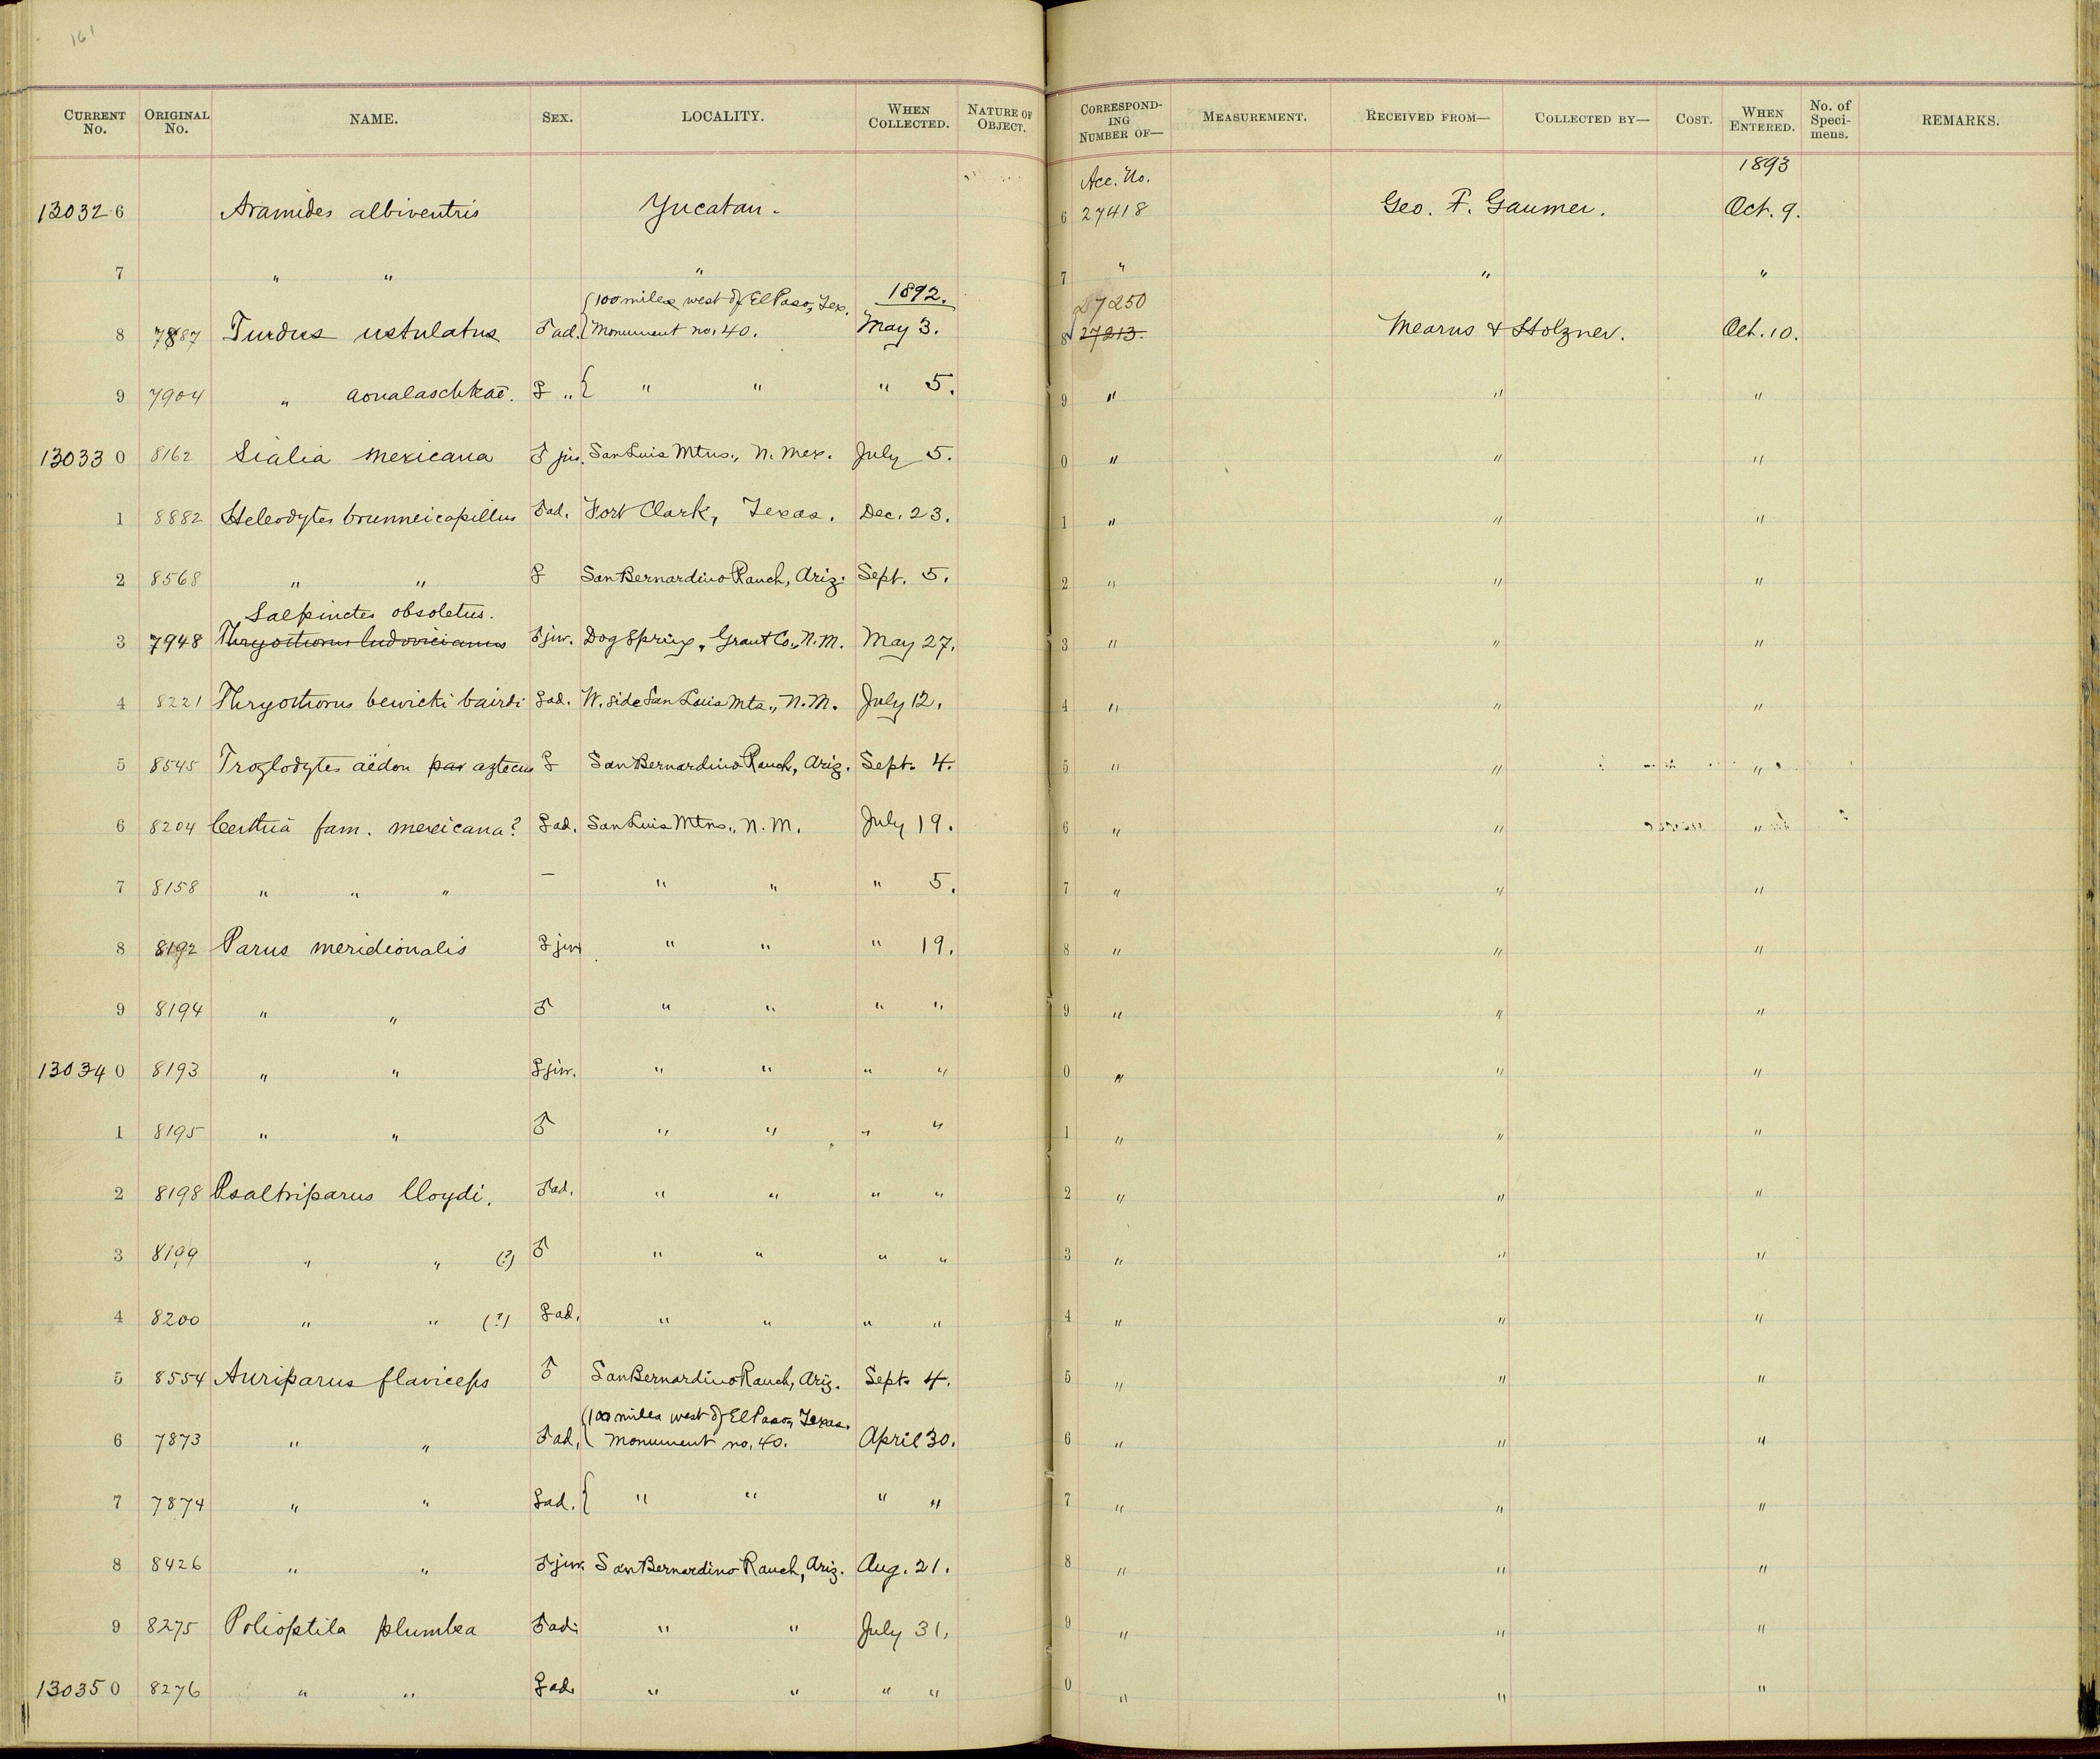 161
CURRENT No. ORIGINAL No. NAME. SEX. LOCALITY. WHEN COLLECTED. NATURE OF OBJECT. CORRESPOND-ING NUMBER OF— MEASUREMENT. RECEIVED FROM— COLLECTED BY— COST. WHEN ENTERED. No. of Speci-mens. REMARKS.
Acc. No. 1893
13032 6 Aramides albiventris Yucatan. 6 27418 Geo. F. Gaumer. Oct. 9.
7 " " " 7 " " "
{100 miles west of El Paso, Tex. 1892. 27250
8 7887 Turdus ustulatus ♂ ad. {Monument no. 40. May 3. 8 27213. Mearns & Holzner. Oct. 10.
9 7904 " aonalaschkae. ♀ " { " " " 5. 9 " " "
13033 0 8162 Sialia mexicana ♂ juv. San Luis Mtns., N. Mex. July 5. 0 " " "
1 8882 Heleodytes brunneicapillus ♂ ad. Fort Clark, Texas. Dec. 23. 1 " " "
2 8568 " " ♀ San Bernardino Ranch, Ariz. Sept. 5. 2 " " "
Salpinctes obsoletus.
3 7948 Thryothorus ludovicianus ♂ juv. Dog Spring, Grant Co., N.M. May 27. 3 " " "
4 8221 Thryothorus bewicki bairdi ♀ ad. W. side San Luis Mts., N.M. July 12. 4 " " "
5 8545 Troglodytes aëdon par aztecus ♀ San Bernardino Ranch, Ariz. Sept. 4. 5 " " "
6 8204 Certhia fam. mexicana? ♀ ad. San Luis Mtns., N.M. July 19. 6 " " "
7 8158 " " " — " " " 5. 7 " " "
8 8192 Parus meridionalis ♀ juv " " " 19. 8 " " "
9 8194 " " ♂ " " " " 9 " " "
13034 0 8193 " " ♀ juv. " " " " 0 " " "
1 8195 " " ♂ " " " " 1 " " "
2 8198 Psaltriparus lloydi. ♂ ad. " " " " 2 " " "
3 8199 " " (?) ♂ " " " " 3 " " "
4 8200 " " (?) ♀ ad. " " " " 4 " " "
5 8554 Auriparus flaviceps ♂ San Bernardino Ranch, Ariz. Sept. 4. 5 " " "
{100 miles west of El Paso, Texas.
6 7873 " " ♂ ad. { Monument no. 40. April 30. 6 " " "
7 7874 " " ♀ ad. { " " " " 7 " " "
8 8426 " " ♂ juv. San Bernardino Ranch, Ariz. Aug. 21. 8 " " "
9 8275 Polioptila plumbea ♂ ad. " " July 31. 9 " " "
13035 0 8276 " " ♀ ad. " " " " 0 " " "